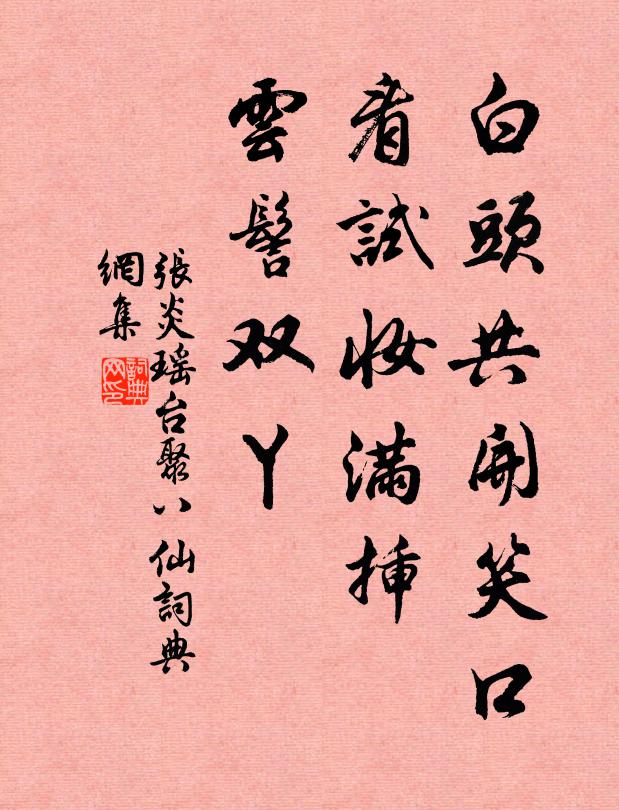 白頭共開笑口
看試妝滿揷
雲髻双丫
張炎瑶台聚八仙詞典
網集
詞典
网印